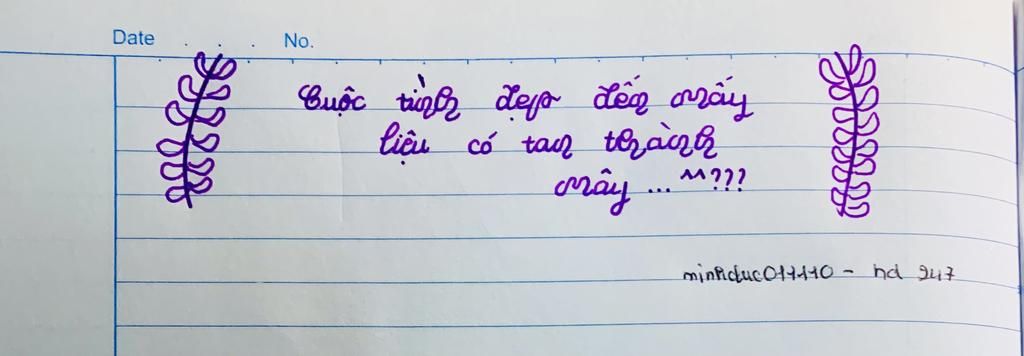 Date . . . No.
Cuộc tình đẹp đến mấy
liệu có tan thành
mây ... ^^???
minhduc011110 - hd 247